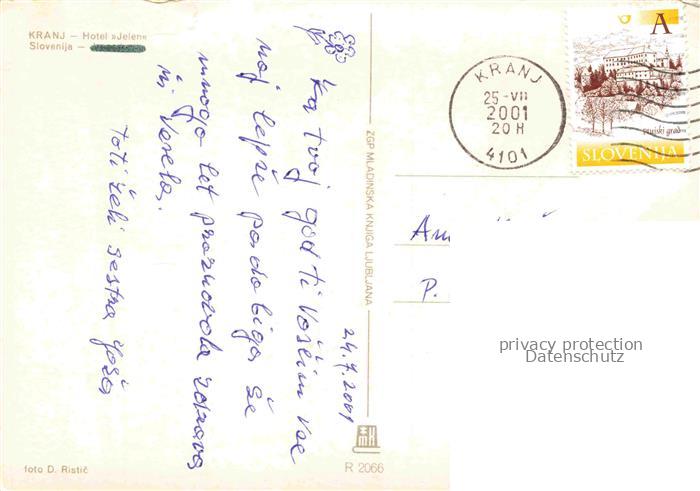 KRANJ – Hotel »Jelen«
Slovenija –
24.7.2001
Ka tvoj god ti vošim vse
naj lepše pa da bi ga še
mnogo let praznovala zdrava
in vesela.
toti želi sestra Joža
foto D. Ristič
ZGP MLADINSKA KNJIGA LJUBLJANA
MK
R 2066
KRANJ
25-VII
2001
20 H
4101
A
ptujski grad
SLOVENIJA
P.
privacy protection
Datenschutz